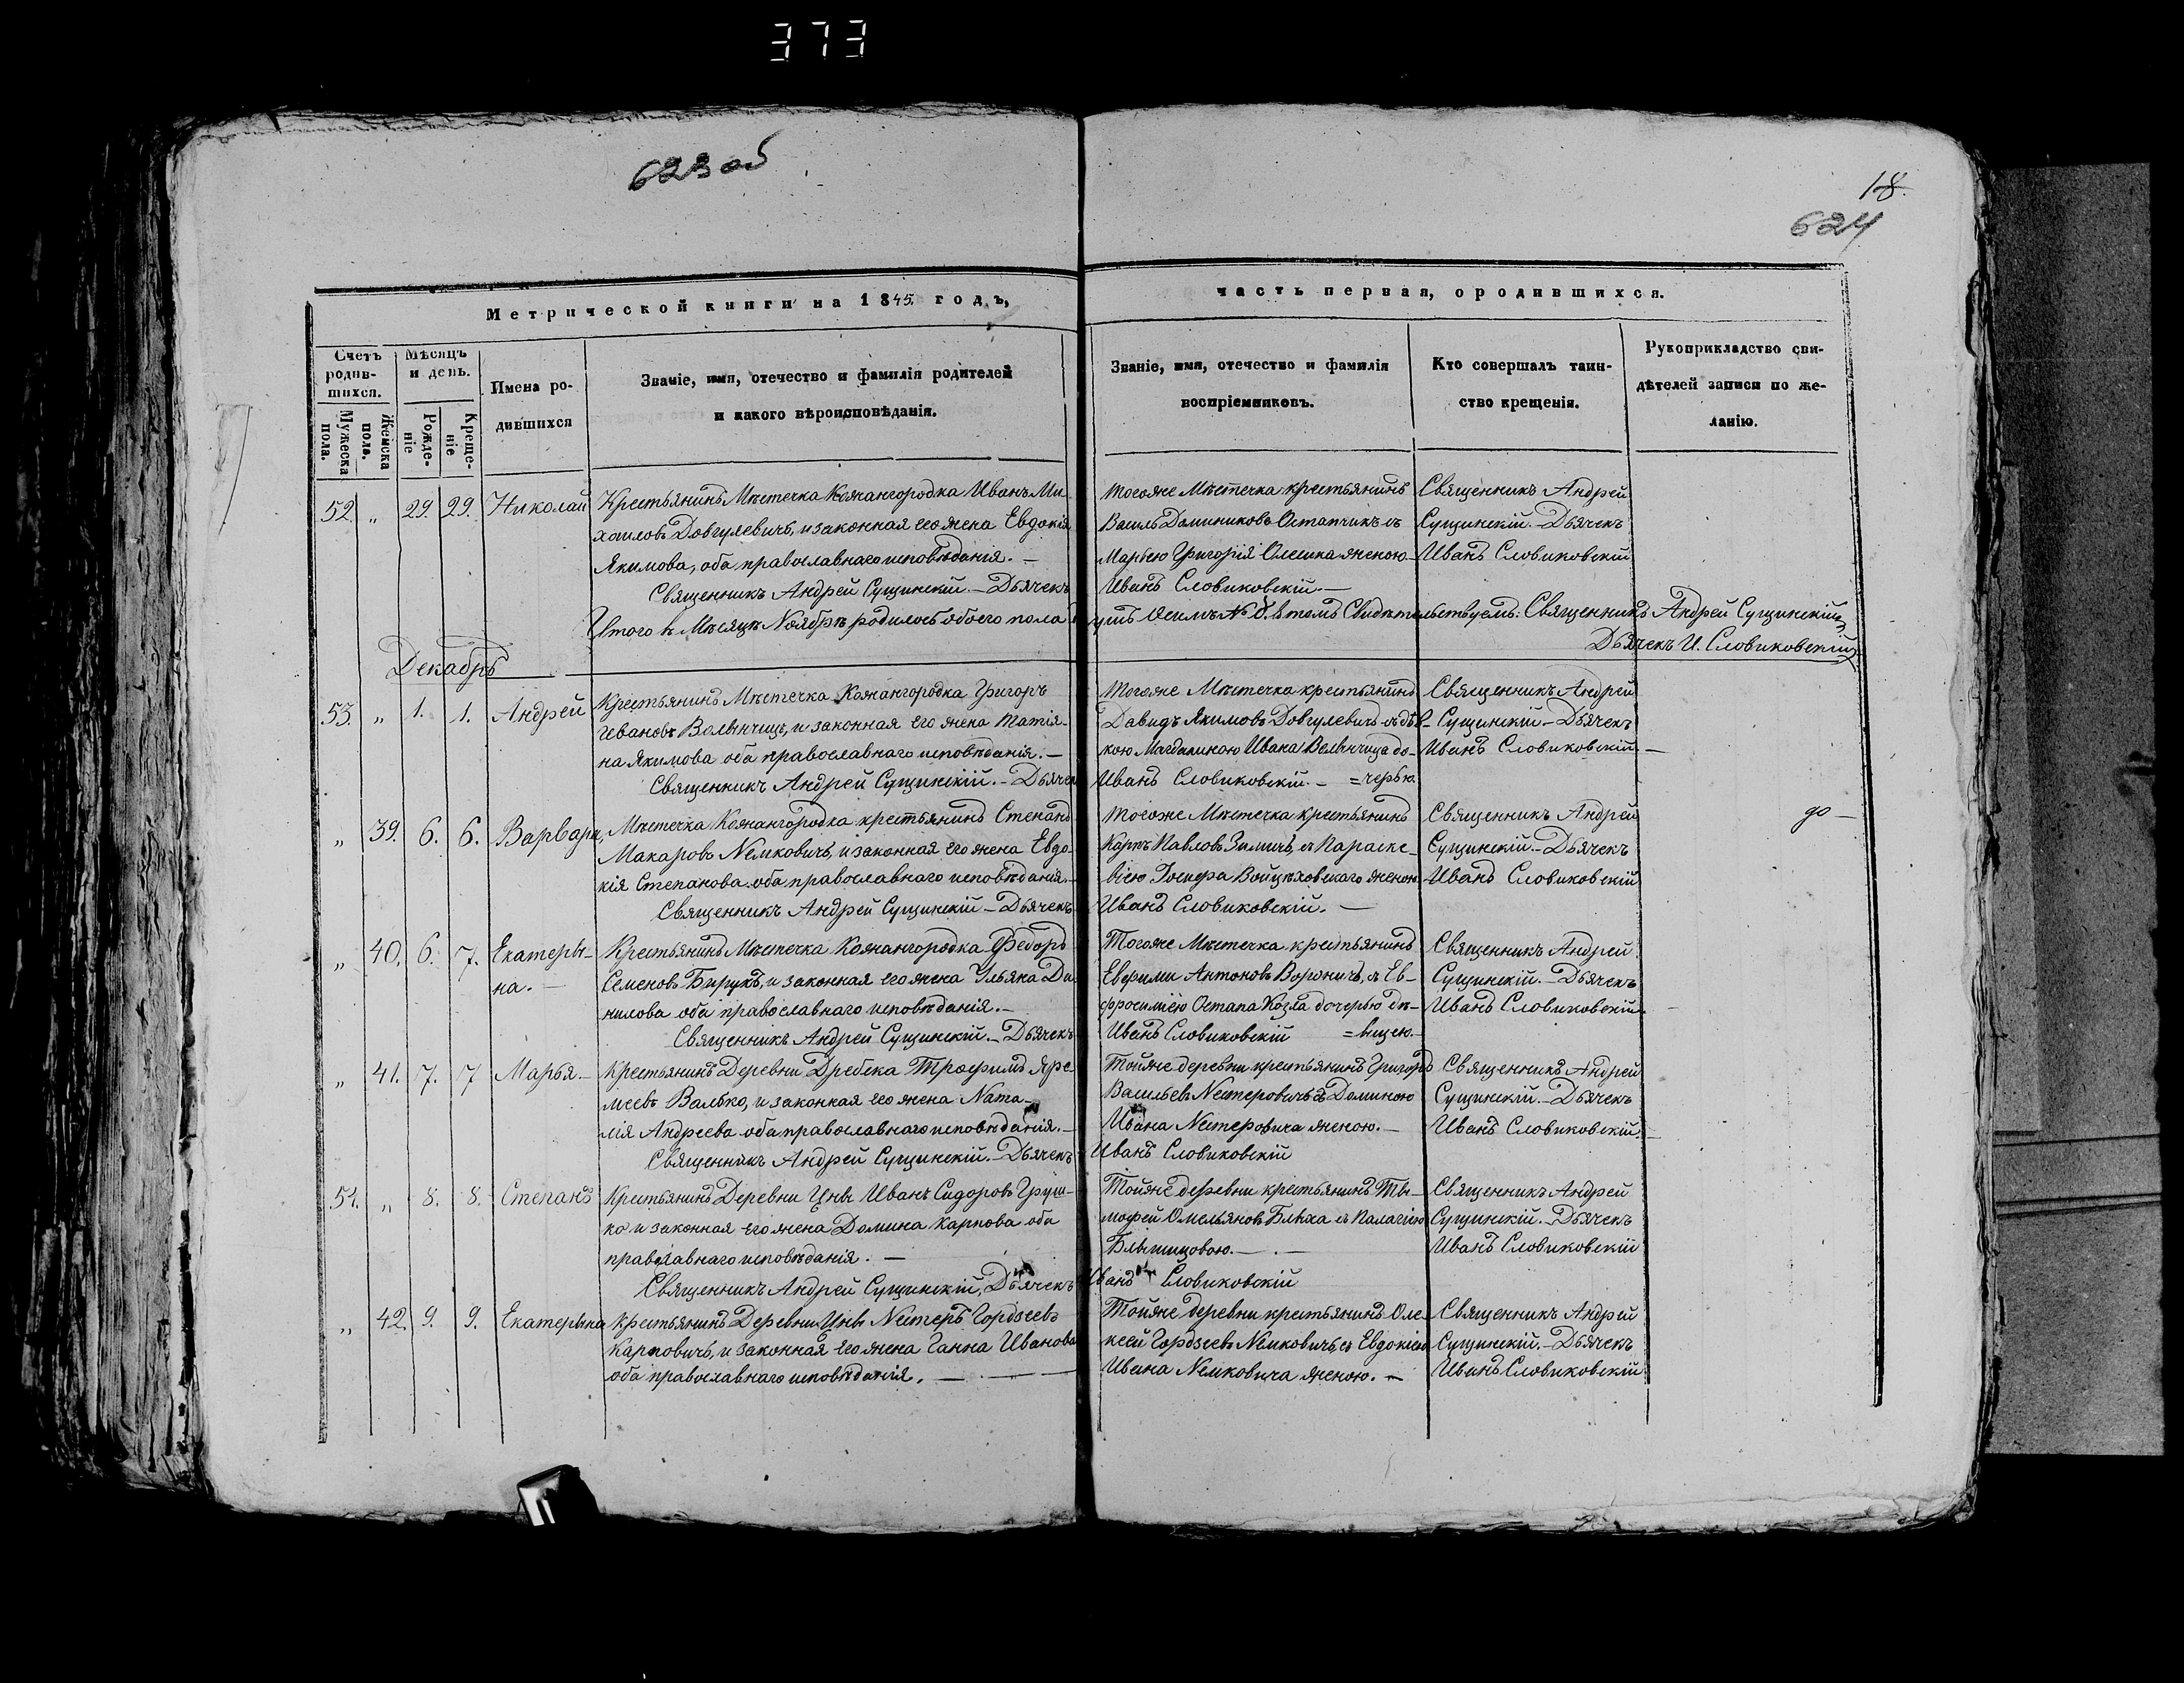 373
623 об
18.
624
Метрической книги на 1845. годъ,
часть первая, ородившихся.
Счетъ родив-шихся.
Мужеска пола.
Женска пола.
Мѣсяцъ и день.
Рожде-ніе
Креще-ніе
Имена ро-
дившихся
Званіе, имя, отечество и фамилія родителей
и какого вѣроисповѣданія.
Званіе, имя, отечество и фамилія
воспріемниковъ.
Кто совершалъ таин-
ство крещенія.
Рукоприкладство сви-
дѣтелей записи по же-
ланію.
52. „ 29. 29. Николай Крестьянинъ Мѣстечка Кожангородка Иванъ Ми-
хаиловъ Довгулевичъ, и законная его жена Евдокія
Якимова, оба православнаго исповѣданія. —
Священникъ Андрей Сущинскій. — Дьячекъ
тогоже Мѣстечка крестьянинъ
Василь Доминиковъ Остапчикъ съ
Марьею Григорія Олешка женою —
Иванъ Словиковскій. —
Священникъ Андрей
Сущинскій. — Дьячекъ
Иванъ Словиковскій
Итого въ Мѣсяцѣ Ноябрѣ родилось обоего пола
№ 8. въ томъ Свидѣтельствуемъ: Священникъ Андрей Сущинскій
Дьячекъ И. Словиковскій
Декабрь
53. „ 1. 1. Андрей Крестьянинъ Мѣстечка Кожангородка Григоръ
Ивановъ Волынчицъ, и законная его жена Татія-
на Якимова оба православнаго исповѣданія. —
Священникъ Андрей Сущинскій. — Дьячек
Тогоже Мѣстечка крестьянинъ
Давидъ Якимовъ Довгулевичъ съ дѣв-
кою Магдалиною Ивана Волынчица до-
Иванъ Словиковскій. — =черью.
Священникъ Андрей
Сущинскій — Дьячекъ
Иванъ Словиковскій. —
„ 39. 6. 6. Варвара, Мѣстечка Кожангородка крестьянинъ Степанъ
Макаровъ Немковичъ, и законная его жена Евдо-
кія Степанова оба православнаго исповѣданія. —
Священникъ Андрей Сущинскій — Дьячекъ
Тогоже Мѣстечка крестьянинъ
Карпъ Павловъ Зимичъ, съ Параске-
віею Іосифа Войцѣховскаго женою
Иванъ Словиковскій. —
Священникъ Андрей
Сущинскій. — Дьячекъ
Иванъ Словиковскій
до —
„ 40. 6. 7. Екатеры-
на. —
Крестьянинъ Мѣстечка Кожангородка Федоръ
Семеновъ Бирукъ, и законная его жена Ульяна Да
нилова оба православнаго исповѣданія. —
Священникъ Андрей Сущинскій. — Дьячекъ
Тогоже Мѣстечка крестьянинъ
Евфими Антоновъ Вороничъ, съ Ев-
фросиніею Остапа Козла дочерью дѣ-
Иванъ Словиковскій =вицею. —
Священникъ Андрей
Сущинскій. — Дьячекъ
Иванъ Словиковскій.
„ 41. 7. 7 Марья — Крестьянинъ Деревни Дребска Трофимъ Яре-
меевъ Валько, и законная его жена Ната-
лія Андреева оба православнаго исповѣданія. —
Священникъ Андрей Сущинскій. — Дьячекъ
Тойже деревни крестьянинъ Григоръ
Васильевъ Нестеровичъ съ Доминою
Ивана Нестеровича женою. —
Иванъ Словиковскій
Священникъ Андрей
Сущинскій. — Дьячекъ
Иванъ Словиковскій.
54. „ 8. 8. Степанъ Крестьянинъ Деревни Цны Иванъ Сидоровъ Груш-
ко и законная его жена Домина Карпова оба
православнаго исповѣданія. —
Священникъ Андрей Сущинскій, Дьячекъ
Тойже деревни крестьянинъ Ты-
мофей Омельяновъ Блѣха съ Палагіею
Иванъ Словиковскій
Священникъ Андрей
Сущинскій. Дьячекъ
Иванъ Словиковскій
„ 42. 9. 9. Екатерына Крестьянинъ Деревни Цны Нестеръ Гордзеевъ
Карповичъ, и законная его жена Ганна Иванова
оба православнаго исповѣданія. —
Тойже деревни крестьянинъ Оле-
ксей Гордзеевъ Немковичъ, съ Евдокіею
Ивана Немковича женою. —
Священникъ Андрей
Сущинскій. — Дьячекъ
Иванъ Словиковскій